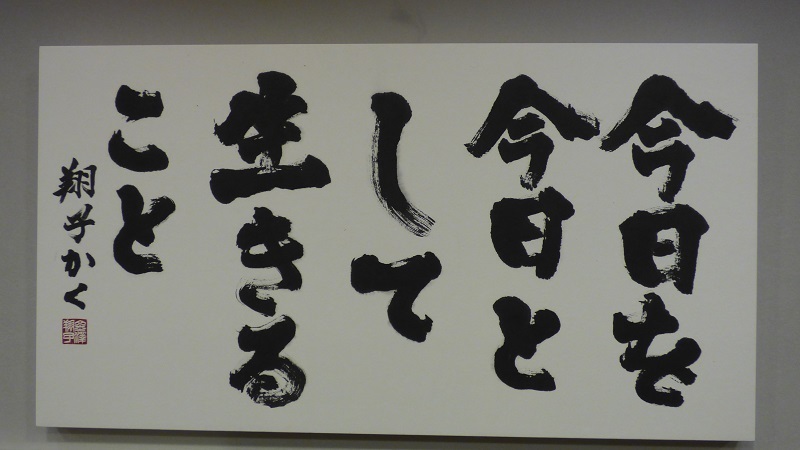 今日を
今日と
して
生きる
こと
翔子かく
金澤翔子